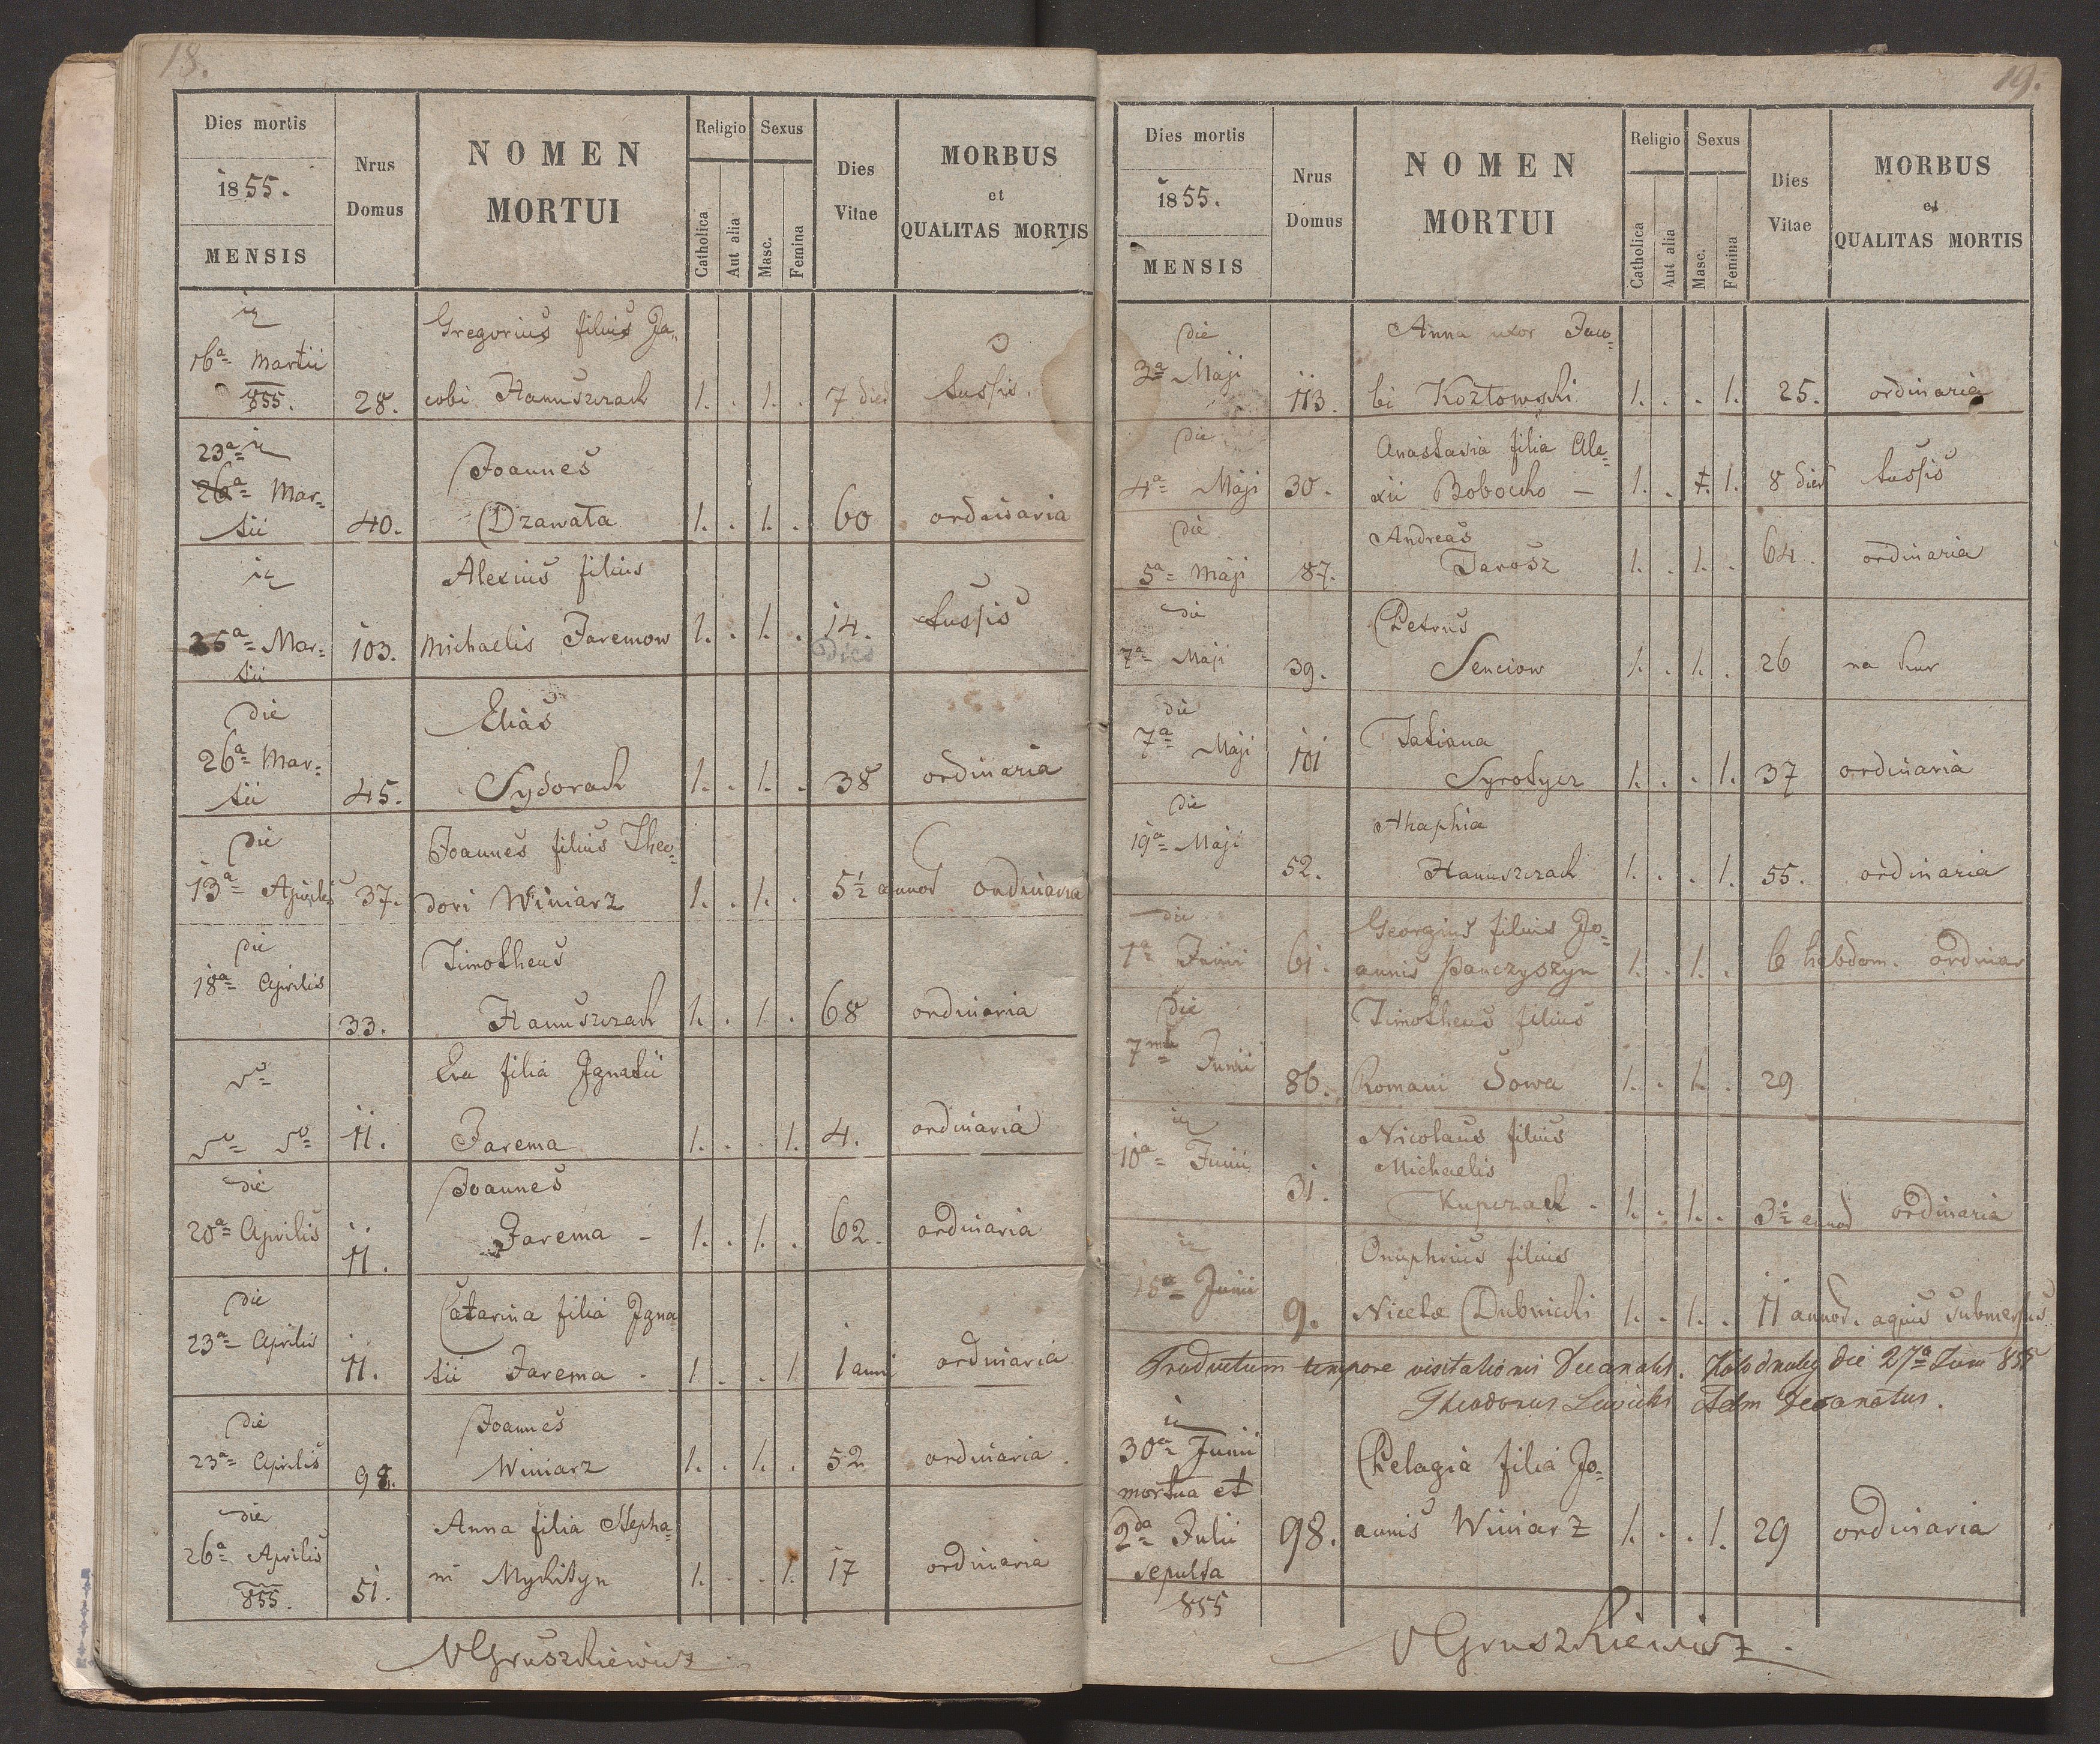 18.
Dies mortis
1855.
MENSIS
Nrus
Domus
NOMEN
MORTUI
Religio
Catholica
Aut alia
Sexus
Masc.
Femina
Dies
Vitae
MORBUS
et
QUALITAS MORTIS
Gregorius filius Ja,,
16a Martii
855. 28. cobi Hanuszczak 1. . 1. . 7 dies tussis.
23a
26a Mar= Joannes
tii 40. Dzawała 1. . 1. . 60 ordinaria
Alexius filius
25a Mar= 103. Michaelis Jaremow 1. . 1. . 14. tussis
tii dies
die Elias
26a Mar=
tii 45. Sydorak 1. . 1. . 38 ordinaria
die Joannes filius Theo=
13a Aprilis 37. dori Winiarz 1. . 1. . 5½ annos ordinaria
die Timotheus
18a Aprilis
33. Hanuszczak 1. . 1. . 68 ordinaria
Eva filia Ignatii
11. Jarema 1. . . 1. 4. ordinaria
die Joannes
20a Aprilis 11. Jarema - 1. . 1. . 62. ordinaria
die Catarina filia Igna
23a Aprilis 11. tii Jarema - 1. . . 1. 1 anni ordinaria
die Joannes
23a Aprilis 98. Winiarz 1. . 1. . 52 ordinaria.
die Anna filia Stepha=
26a Aprilis
855. 51. ni Mykityn 1. . . 1. 17 ordinaria
VGruszkiewicz
19.
Dies mortis
1855.
MENSIS
Nrus
Domus
NOMEN
MORTUI
Religio
Catholica
Aut alia
Sexus
Masc.
Femina
Dies
Vitae
MORBUS
et
QUALITAS MORTIS
die Anna uxor Jaco=
3a Maji 113. bi Kozłowski 1. . . 1. 25. ordinaria
die Anastasia filia Ale=
4a Maji 30. xii Bobecko - 1. . 1. 1. 8 dies tussis
die Andreas
5a Maji 87. Jarosz 1. . 1. . 64. ordinaria
die Petrus
7a Maji 39. Senciow 1. . 1. . 26 na kur
die
7a Maji 101 Tatiana
Syrotycz 1. . . 1. 37 ordinaria
die
19a Maji Ahaphia
52. Hanuszczak 1. . . 1. 55. ordinaria
die Georgius filius Jo=
1a Junii 61. annis Panczyszyn 1. . 1. . 6 hebdom. ordinar
die Timotheus filius
7ma Junii 86. Romani Sowa 1. . 1. . 29
Nicolaus filius
10a Junii Michaelis
31. Kupczak. 1. . 1. . 3½ annos ordinaria
Onuphrius filius
15a Junii 9. Nicetae Dubnicki 1. . 1. . 11 annos. aquis submersus
Productum tempore visitationis Decanalis. die 27a Juni 855
Theodorus Lewicki Adm Decanatus.
30a Junii Pelagia filia Jo=
mortua et
2da Julii 98. annis Winiarz 1. . . 1. 29 ordinaria
sepulta
855
VGruszkiewicz.